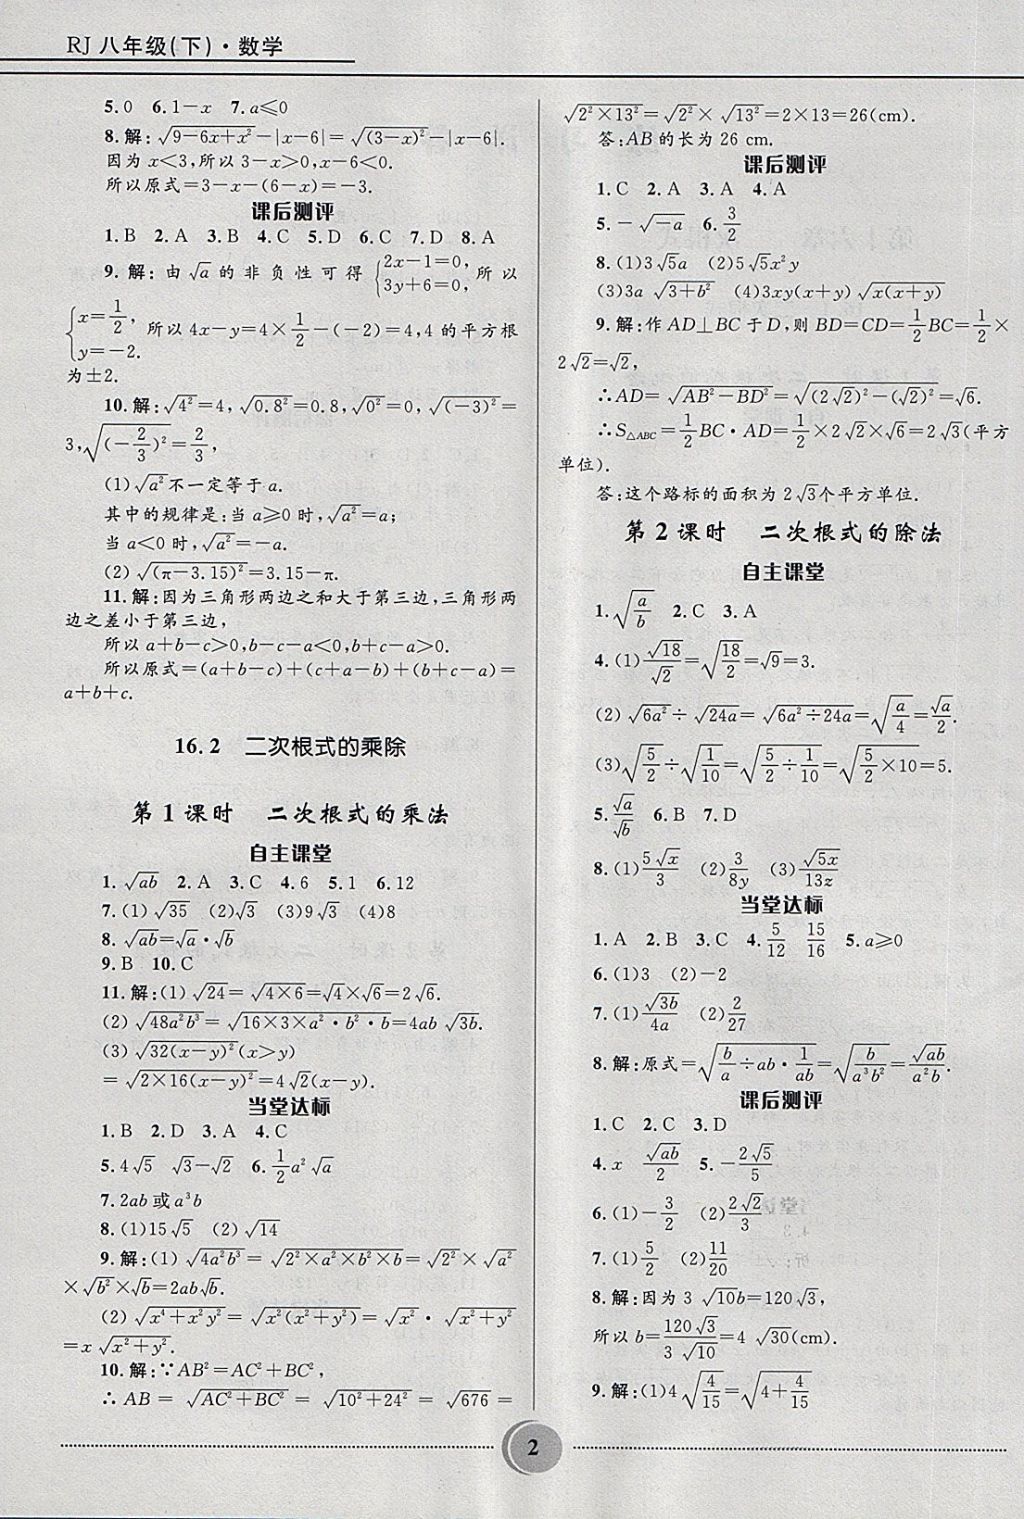 RJ 八年级(下)·数学
5.0 6.1-x 7.a≤0
8.解:√(9-6x+x²)-|x-6|=√((3-x)²)-|x-6|.
因为 x<3,所以 3-x>0,x-6<0.
所以原式=3-x-(6-x)=-3.
课后测评
1.B 2.A 3.B 4.C 5.D 6.C 7.D 8.A
9.解:由√a的非负性可得{2x-1=0, 3y+6=0, 所以
{x=1/2, y=-2. 所以 4x-y=4×1/2-(-2)=4,4 的平方根
为±2.
10.解:√(4²)=4,√(0.8²)=0.8,√(0²)=0,√((-3)²)=
3,√((-2/3)²)=2/3,
(1)√(a²)不一定等于 a.
其中的规律是:当 a≥0 时,√(a²)=a;
当 a<0 时,√(a²)=-a.
(2)√((π-3.15)²)=3.15-π.
11.解:因为三角形两边之和大于第三边,三角形两
边之差小于第三边,
所以 a+b-c>0,b-c-a<0,b+c-a>0.
所以原式=(a+b-c)+(c+a-b)+(b+c-a)=
a+b+c.
16.2 二次根式的乘除
第 1 课时 二次根式的乘法
自主课堂
1.√(ab) 2.A 3.C 4.6 5.1 6.12
7.(1)√35 (2)√3 (3)9√3 (4)8
8.√(ab)=√a·√b
9.B 10.C
11.解:(1)√24=√(4×6)=√4×√6=2√6.
(2)√(48a²b³)=√(16×3×a²·b²·b)=4ab√(3b).
(3)√(32(x-y)²)(x>y)
=√(2×16(x-y)²)=4√2(x-y).
当堂达标
1.B 2.D 3.A 4.C
5.4√5 √3-√2 6.1/2a²√a
7.2ab 或 a³b
8.(1)15√5 (2)√14
9.解:(1)√(4a²b³)=√(2²×a²×b²×b)=√(2²)×√(a²)
×√(b²)×√b=2ab√b.
(2)√(x⁴+x²y²)=√(x²(x²+y²))=√(x²)·√(x²+y²)
=x√(x²+y²).
10.解:∵AB²=AC²+BC²,
∴AB=√(AC²+BC²)=√(10²+24²)=√676=
√(2²×13²)=√(2²)×√(13²)=2×13=26(cm).
答:AB 的长为 26 cm.
课后测评
1.C 2.A 3.A 4.A
5.-√(-a) 6.3/2
8.(1)3√5a (2)5√5x²y
(3)3a√(3+b²) (4)3xy(x+y)√(x(x+y))
9.解:作 AD⊥BC 于 D,则 BD=CD=1/2BC=1/2×
2√2=√2,
∴AD=√(AB²-BD²)=√((2√2)²-(√2)²)=√6.
∴S△ABC=1/2BC·AD=1/2×2√2×√6=2√3(平方
单位).
答:这个路标的面积为 2√3个平方单位.
第 2 课时 二次根式的除法
自主课堂
1.√(a/b) 2.C 3.A
4.(1)√18/√2=√(18/2)=√9=3.
(2)√(6a²)÷√(24a)=√(6a²÷24a)=√(a/4)=√a/2.
(3)√(5/2)÷√(1/10)=√(5/2÷1/10)=√(5/2×10)=5.
5.√a/√b 6.B 7.D
8.(1)5√x/3 (2)3/8y (3)√(5x)/13z
当堂达标
1.A 2.B 3.C 4.5/12 15/16 5.a≥0
6.(1)3 (2)-2
7.(1)√(3b)/4a (2)2/27
8.解:原式=√(b/a÷ab·1/ab)=√(b/a³b²)=√(ab)/a²b.
课后测评
1.C 2.C 3.D
4.x √(ab)/2 5.-2√5/5
6.(1)-3/2 (2)2√2/3
7.(1)5/2 (2)11/20
8.解:因为 3√10b=120√3,
所以 b=120√3/3√10=4√30(cm).
9.解:(1)4√(4/15)=√(4+4/15)
2